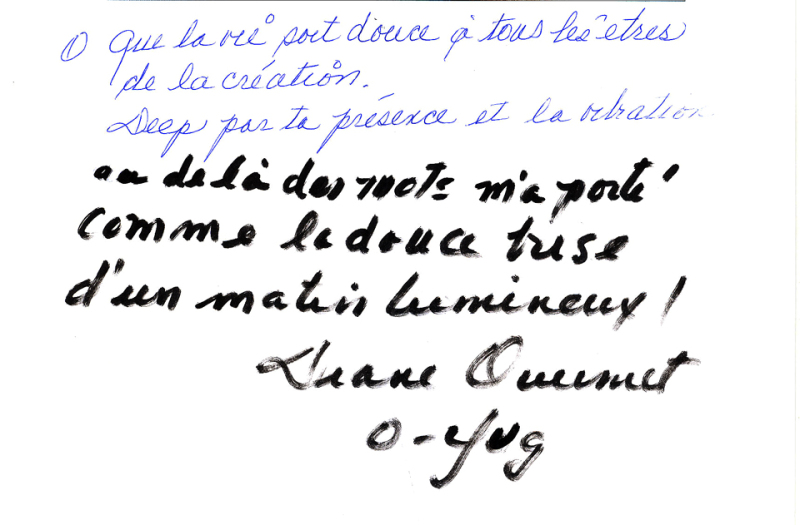 ① Que la vie soit douce à tous les êtres
de la création.
Deep par ta présence et la vibration
au delà des mots m'a porté
comme la douce brise
d'un matin lumineux !
Diane Ouimet
O-Yug